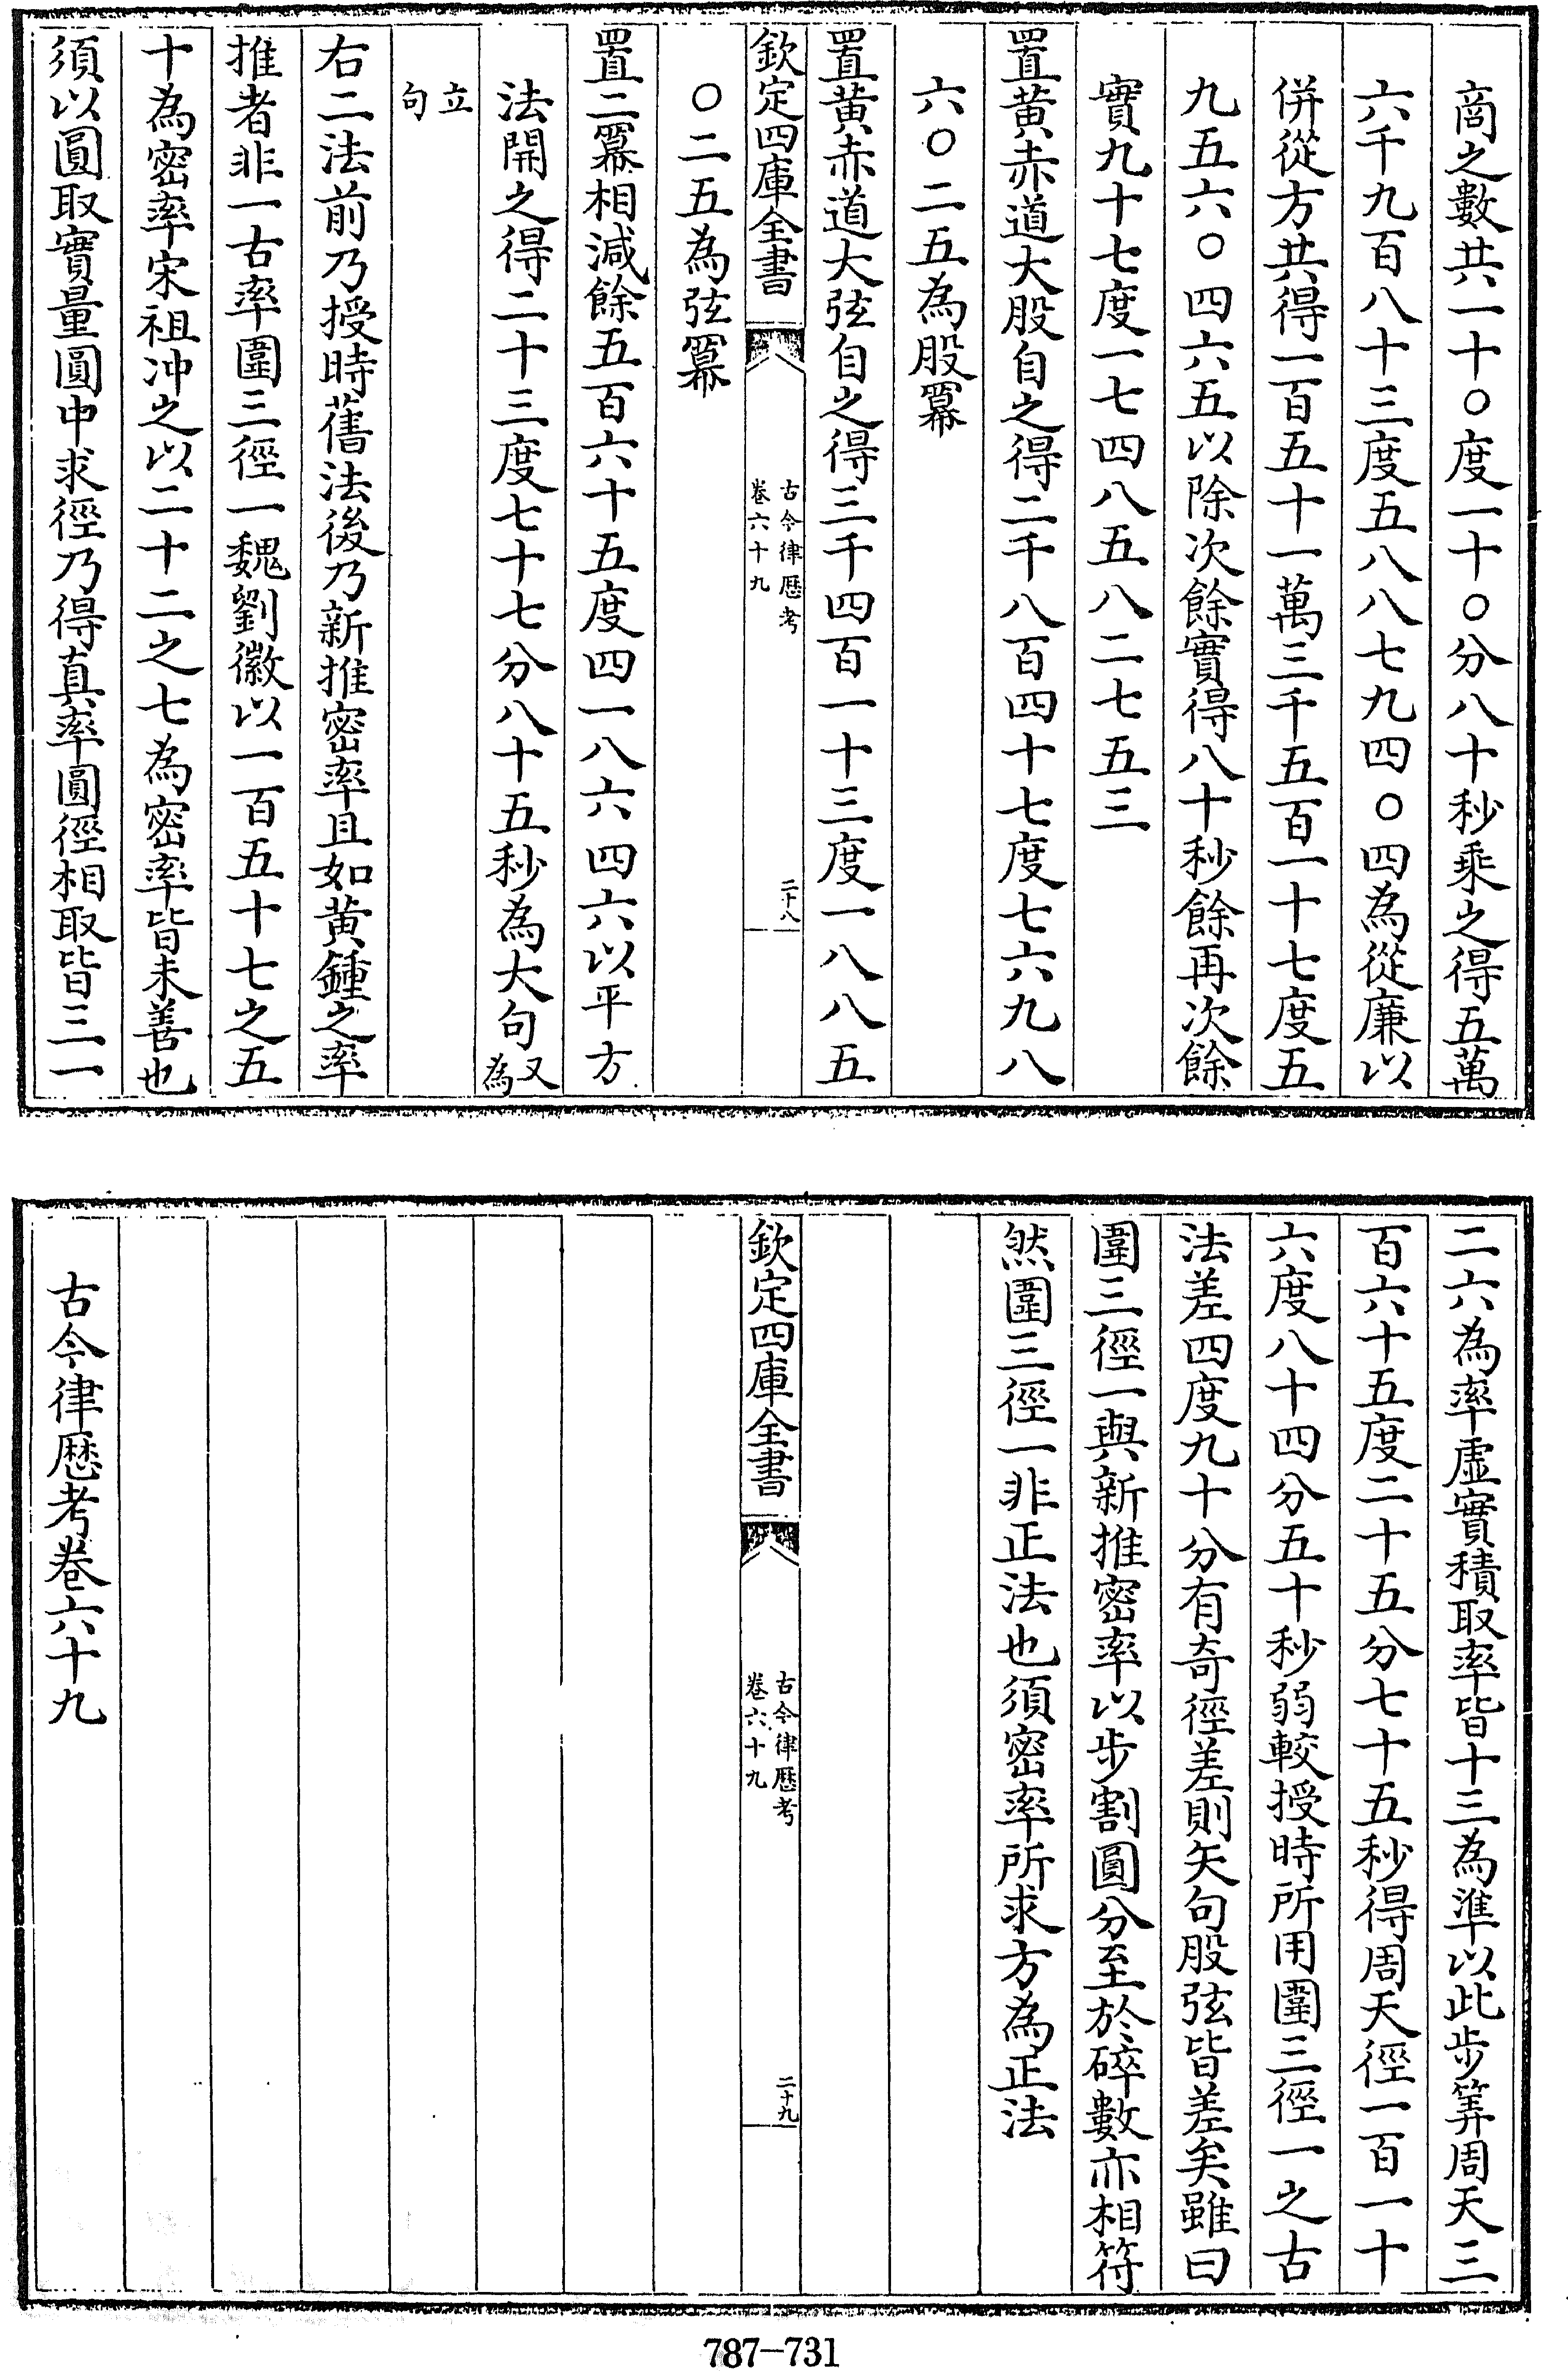 商之數共一十〇度一十〇分八十秒乘之得五萬
六千九百八十三度五八八七九四〇四為從廉以
併從方共得一百五十一萬三千五百一十七度五
九五六〇四六五以除次餘實得八十秒餘再次餘
實九十七度一七四八五八二七五三
置黄赤道大股自之得二千八百四十七度七六九八
六〇二五為股冪
置黄赤道大弦自之得三千四百一十三度一八八五
欽定四庫全書
古今律厯考
卷六十九
二十八
〇二五為弦冪
置二冪相減餘五百六十五度四一八六四六以平方
法開之得二十三度七十七分八十五秒為大句又
為
立
句
右二法前乃授時舊法後乃新推密率且如黄鍾之率
推者非一古率圍三徑一魏劉徽以一百五十七之五
十為密率宋祖冲之以二十二之七為密率皆未善也
須以圓取實量圓中求徑乃得真率圓徑相取皆三一
二六為率虚實積取率皆十三為準以此步筭周天三
百六十五度二十五分七十五秒得周天徑一百一十
六度八十四分五十秒弱較授時所用圍三徑一之古
法差四度九十分有奇徑差則矢句股弦皆差矣雖曰
圍三徑一與新推密率以步割圓分至於碎數亦相符
然圍三徑一非正法也須密率所求方為正法
欽定四庫全書
古今律厯考
卷六十九
二十九
古今律厯考卷六十九
787-731